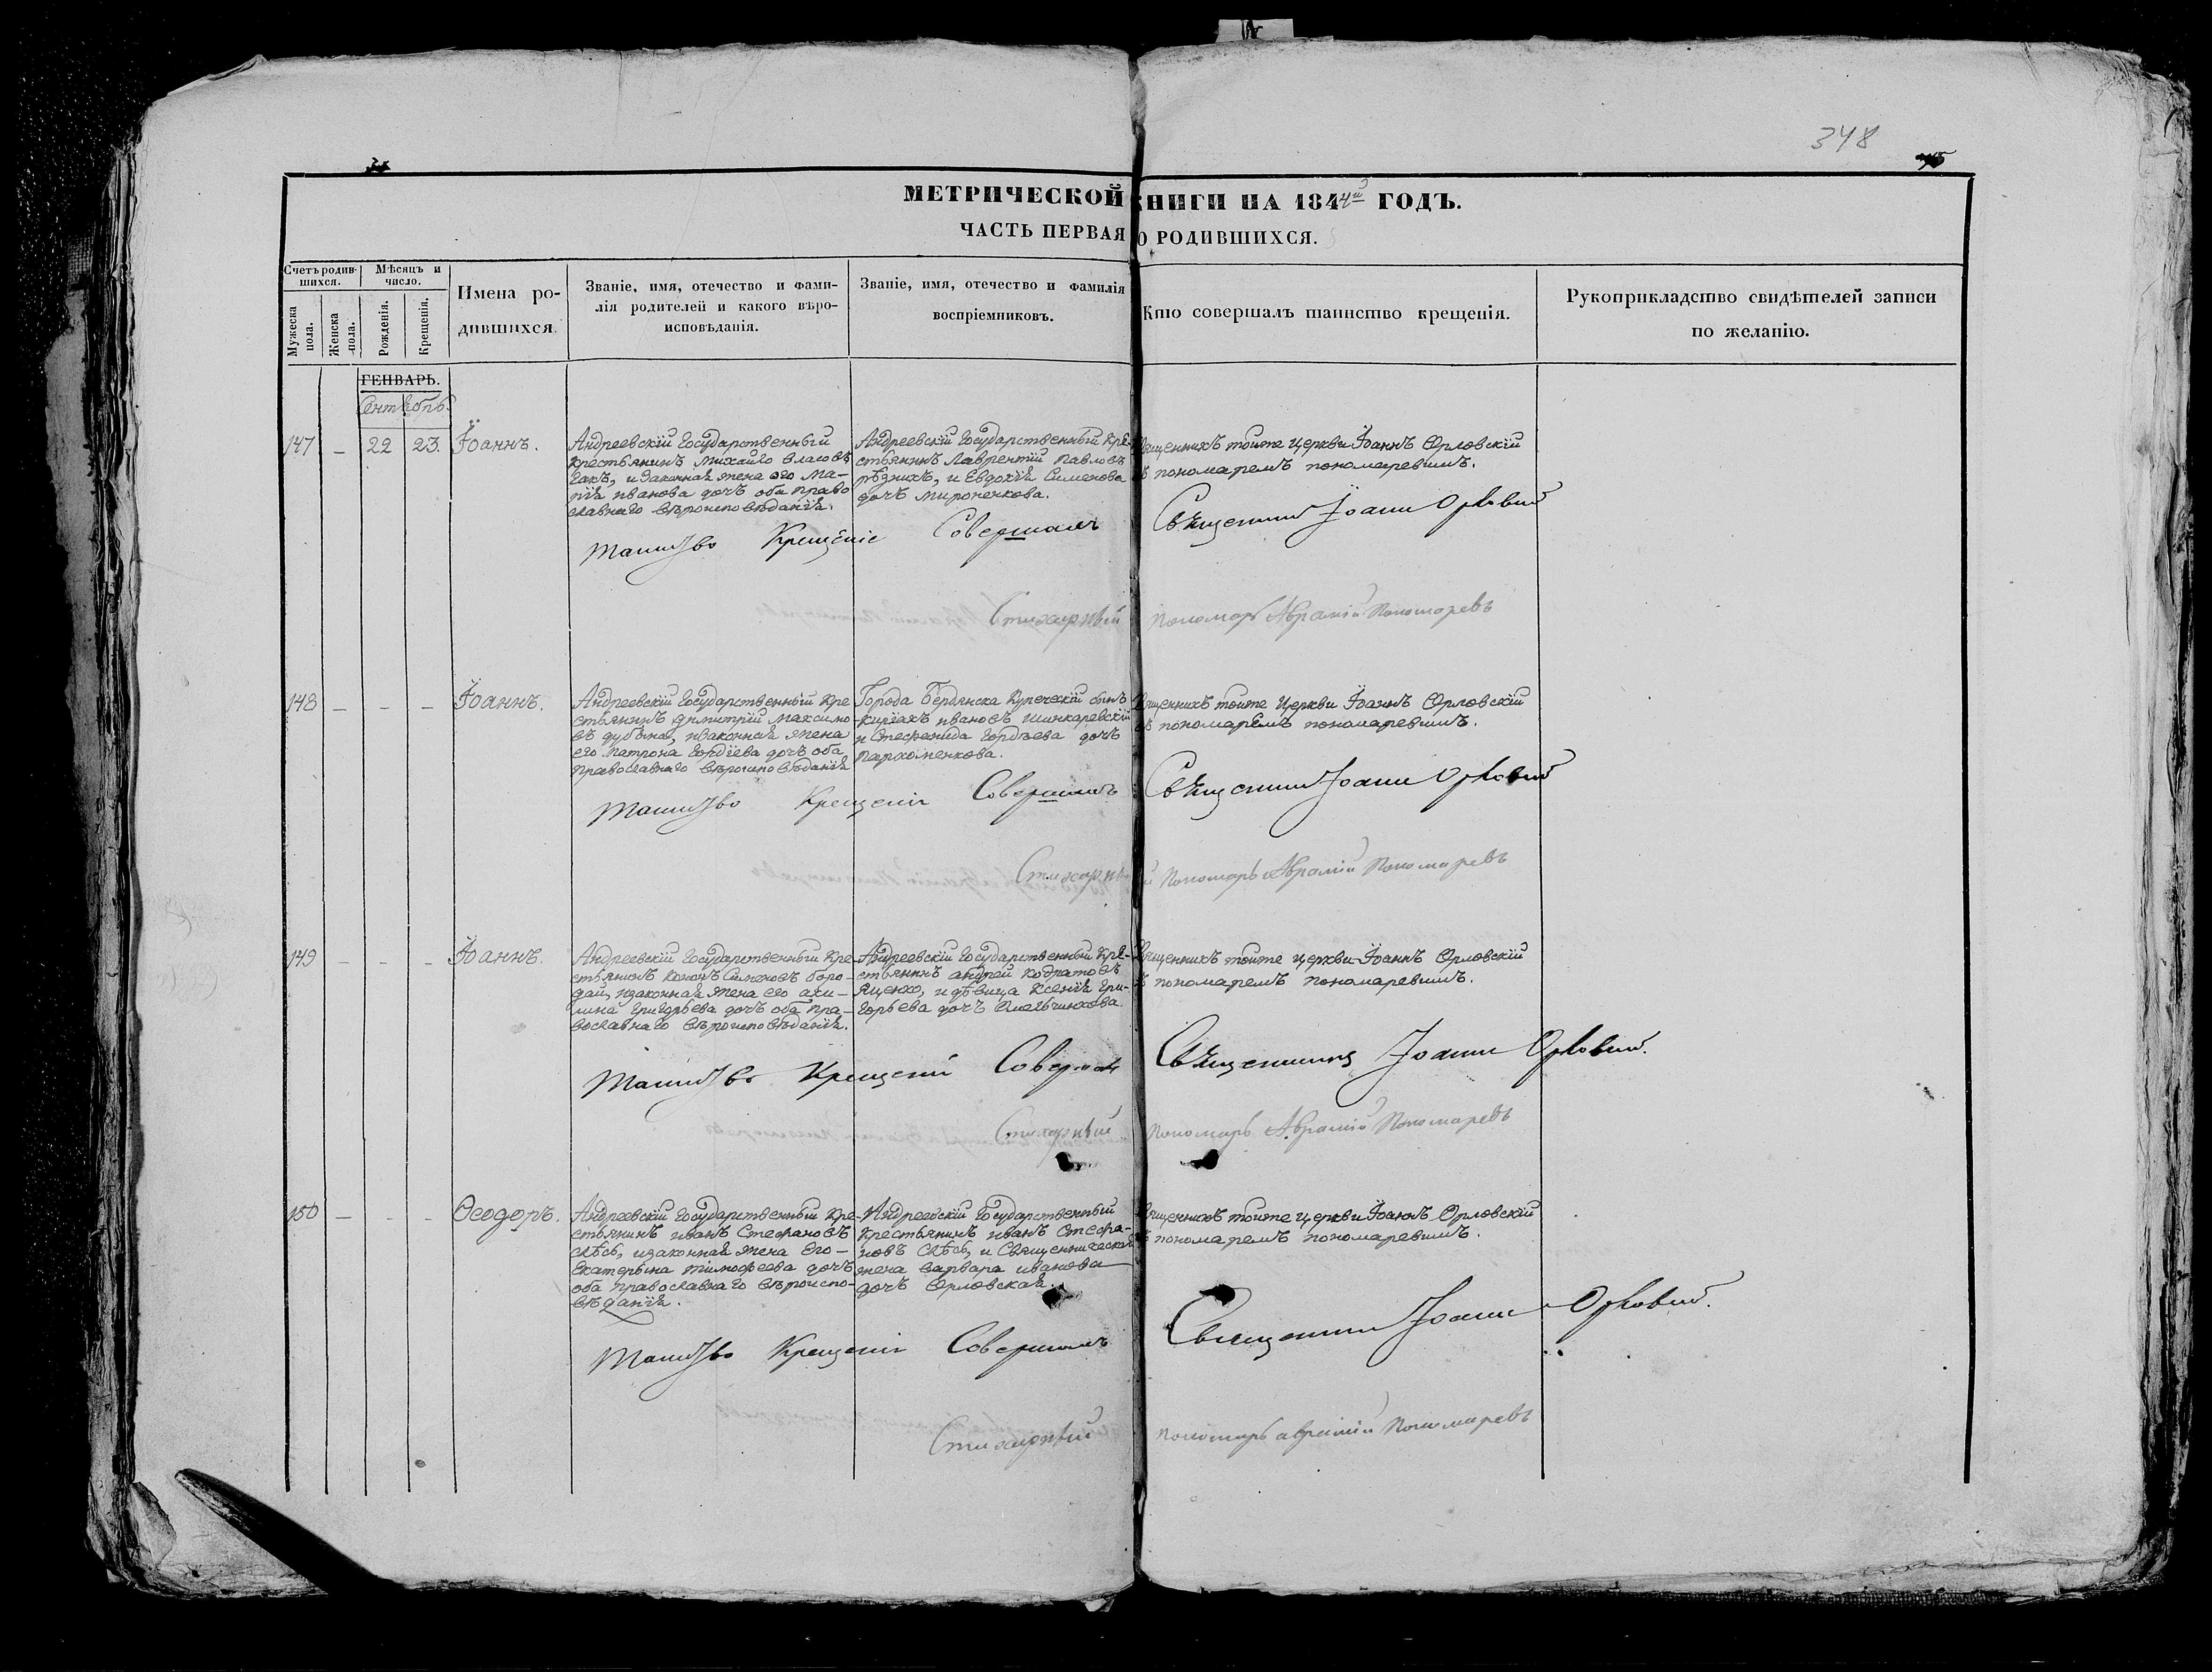 348
МЕТРИЧЕСКОЙ КНИГИ НА 1844й ГОДЪ.
ЧАСТЬ ПЕРВАЯ О РОДИВШИХСЯ.
Счетъ родив-
шихся.
Мужеска
пола.
Женска
пола.
Мѣсяцъ и
число.
Рожденія.
Крещенія.
Имена ро-
дившихся.
Званіе, имя, отечество и фами-
лія родителей и какого вѣро-
исповѣданія.
Званіе, имя, отечество и фамилія
воспріемниковъ.
Кто совершалъ таинство крещенія.
Рукоприкладство свидѣтелей записи
по желанію.
ГЕНВАРЬ.
Сентябрь.
147 – 22 23. Іоаннъ.
Андреевскій Государственный
крестьянинъ Михайло Власовъ
и законная жена его Ма-
рія иванова дочь оба право
славнаго вѣроисповѣданія.
Андреевскій Государственный Кре-
стьянинъ Лаврентій Павловъ
рѣзникъ, и Евдокія Симеонова
дочь Мироненкова.
Священникъ тойже церкви Іоаннъ Орловскій
съ пономаремъ пономаревымъ.
Таинство Крещеніе Совершалъ Священникъ Іоаннъ Орловскій
Стихарный пономарь Аврамій Пономаревъ
148 – – – Іоаннъ.
Андреевскій Государственный Кре
стьянинъ Димитрій Максимо
въ дубына, изаконная жена
его Матрона Гордіева дочь оба
Православнаго вѣроисповѣданія
Города Бердянска Купеческій сынъ
Киріакъ ивановъ шинкаревскій
и Стефанида Гордѣева дочь
Пархоменкова.
Священникъ тойже Церкви Іоаннъ Орловскій
съ пономаремъ пономаревымъ.
Таинство Крещенія Совершалъ Священникъ Іоаннъ Орловскій
Стихарный Пономарь Аврамій Пономаревъ
149 – – – Іоаннъ.
Андреевскій Государственный Кре
стьянинъ Симеоновъ боро-
дай, изаконная жена его аки-
лина григорьева дочь оба пра-
вославнаго вѣроисповѣданія.
Андреевскій Государственный Кре-
стьянинъ андрей кодратовъ
Яценко, и дѣвица Ксенія Гри-
горьева дочь Омельчинкова
Священникъ тойже церкви Іоаннъ Орловскій
съ пономаремъ пономаревымъ.
Таинство Крещеній Совершалъ Священникъ Іоаннъ Орловскій.
Стихарный пономарь Аврамій Пономаревъ
150 – – – Ѳеодоръ.
Андреевскій Государственный Кре-
стьянинъ иванъ Стефановъ
слѣсь, изаконная жена Его-
Екатерына тимофеева дочь
оба православнаго вѣроиспо-
вѣданія.
Андреевскій Государственный
Крестьянинъ иванъ Стефа-
новъ слѣсь, и Священническая
жена варвара иванова
дочь Орловская.
Священникъ тойже церкви Іоаннъ Орловскій
съ пономаремъ пономаревымъ.
Таинство Крещенія Совершалъ Священникъ Іоаннъ Орловскій.
Стихарный пономарь аврамій Пономаревъ